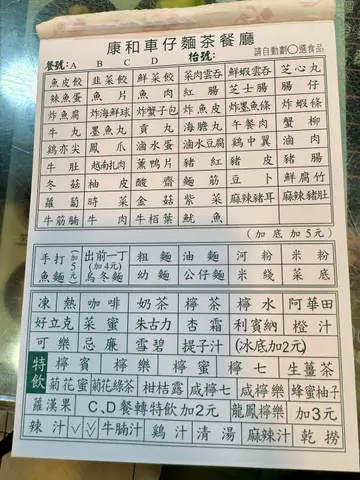 康和車仔麵茶餐廳
餐號:A B C D 枱號: 請自動劃○選食品
魚皮餃 韭菜餃 鮮菜餃 菜肉雲吞 鮮蝦雲吞 芝心丸
辣魚蛋 魚片 魚肉 紅腸 芝士腸 腸仔
炸魚腐 炸海鮮球 炸蟹子包 炸魚皮 炸墨魚條 炸蝦條
牛丸 墨魚丸 貢丸 海膽丸 午餐肉 蟹柳
鷄亦尖 鳳爪 滷水蛋 滷水豆腐 鷄中翼 滷肉
牛肚 越南扎肉 薰鴨片 豬紅 豬皮 豬腸
冬菇 柚皮 酸齋 麵筋 豆卜 鮮腐竹
蘿蔔 時菜 金菇 紫菜 麻辣豬耳 麻辣豬肚
牛筋腩 牛肉 牛栢葉 魷魚
(加底加5元)
手打魚麵(加5元) 出前一丁(加4元) 粗麵 油麵 河粉 米粉
烏冬麵 幼麵 公仔麵 米綫 菜底
凍 熱 咖啡 奶茶 檸茶 檸水 阿華田
好立克 菜蜜 朱古力 杏霜 利賓納 橙汁
可樂 忌廉 雪碧 提子汁 (冰底加2元)
特飲 檸賓 檸樂 檸蜜 檸七 生薑茶
菊花蜜 菊花綠茶 柑桔露 咸檸七 咸檸樂 蜂蜜柚子
羅漢果 C、D餐轉特飲加2元 龍鳳檸樂 加3元
辣汁 牛腩汁 鷄汁 清湯 麻辣汁 乾撈